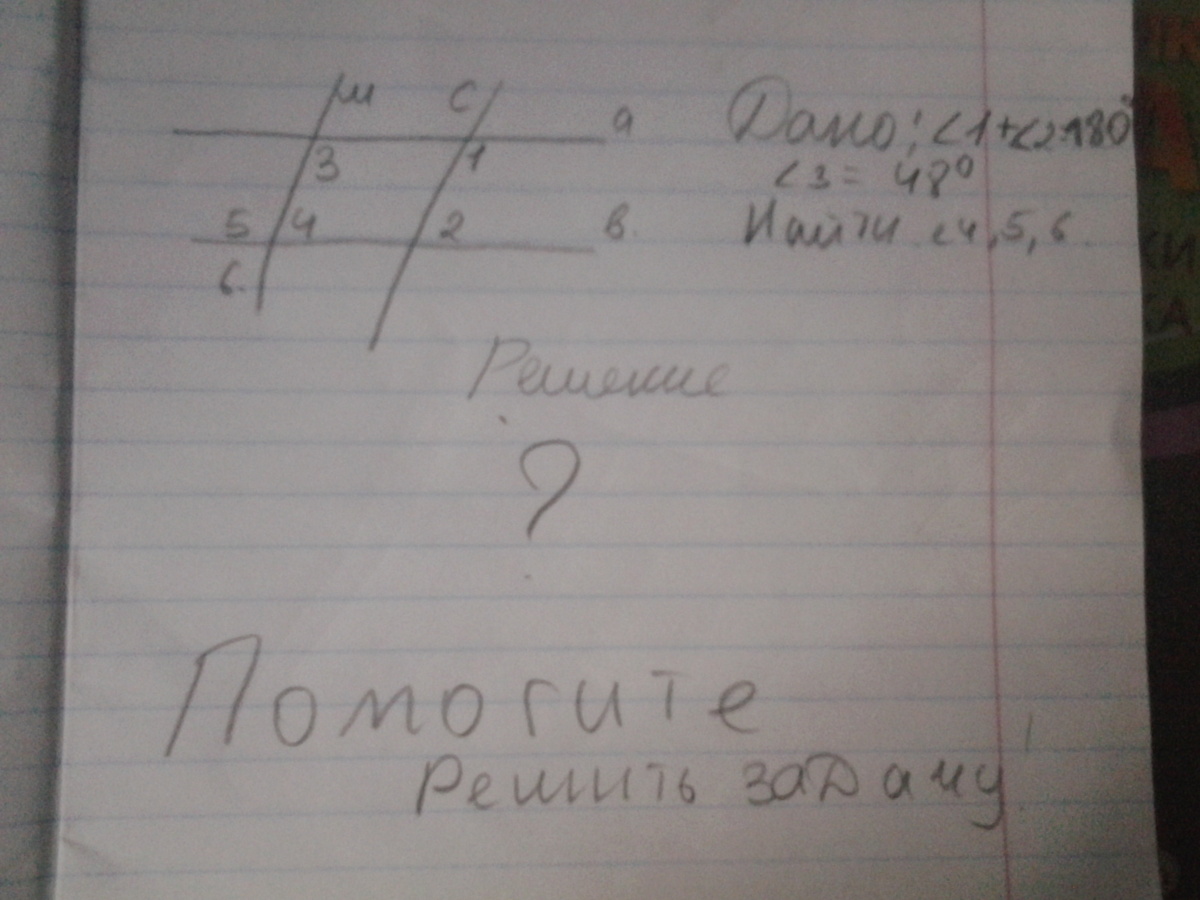 м с а
3 1
5 4 2 в.
6.
Дано: <1+<2=180°
<3 = 48°
Найти <4,5,6.
Решение
?
Помогите
решить задачу!